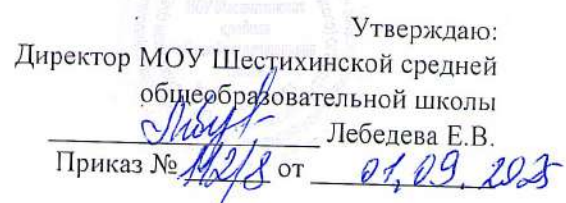 Утверждаю:
Директор МОУ Шестихинской средней
общеобразовательной школы
Лебедева Е.В.
Приказ № 112/8 от 01,09,2025